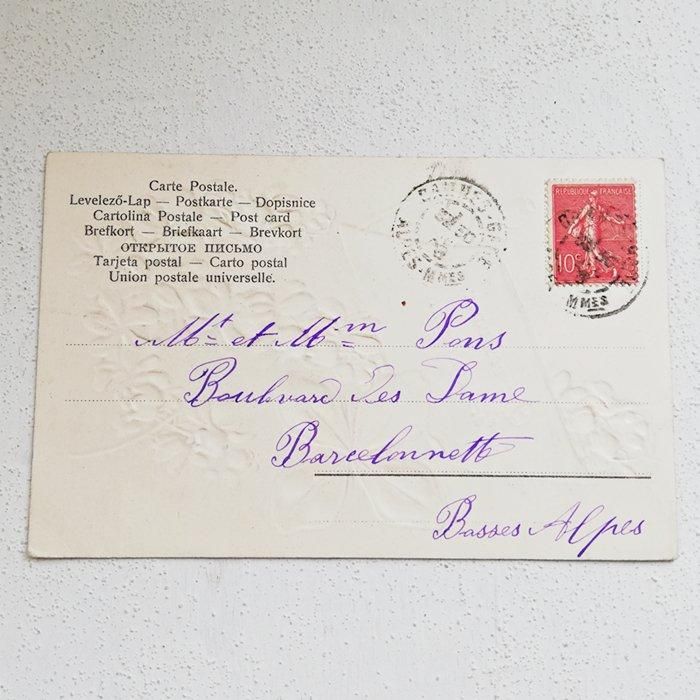 Carte Postale.
Levelező-Lap — Postkarte — Dopisnice
Cartolina Postale — Post card
Brefkort — Briefkaart — Brevkort
ОТКРЫТОЕ ПИСЬМО
Tarjeta postal — Carto postal
Union postale universelle.
CANNES-GARE
ALPES-MMES
REPUBLIQUE FRANÇAISE
10c
MMES
Mt et Mm Pons
Boulvard des Dame
Barcelonnett
Basses Alpes